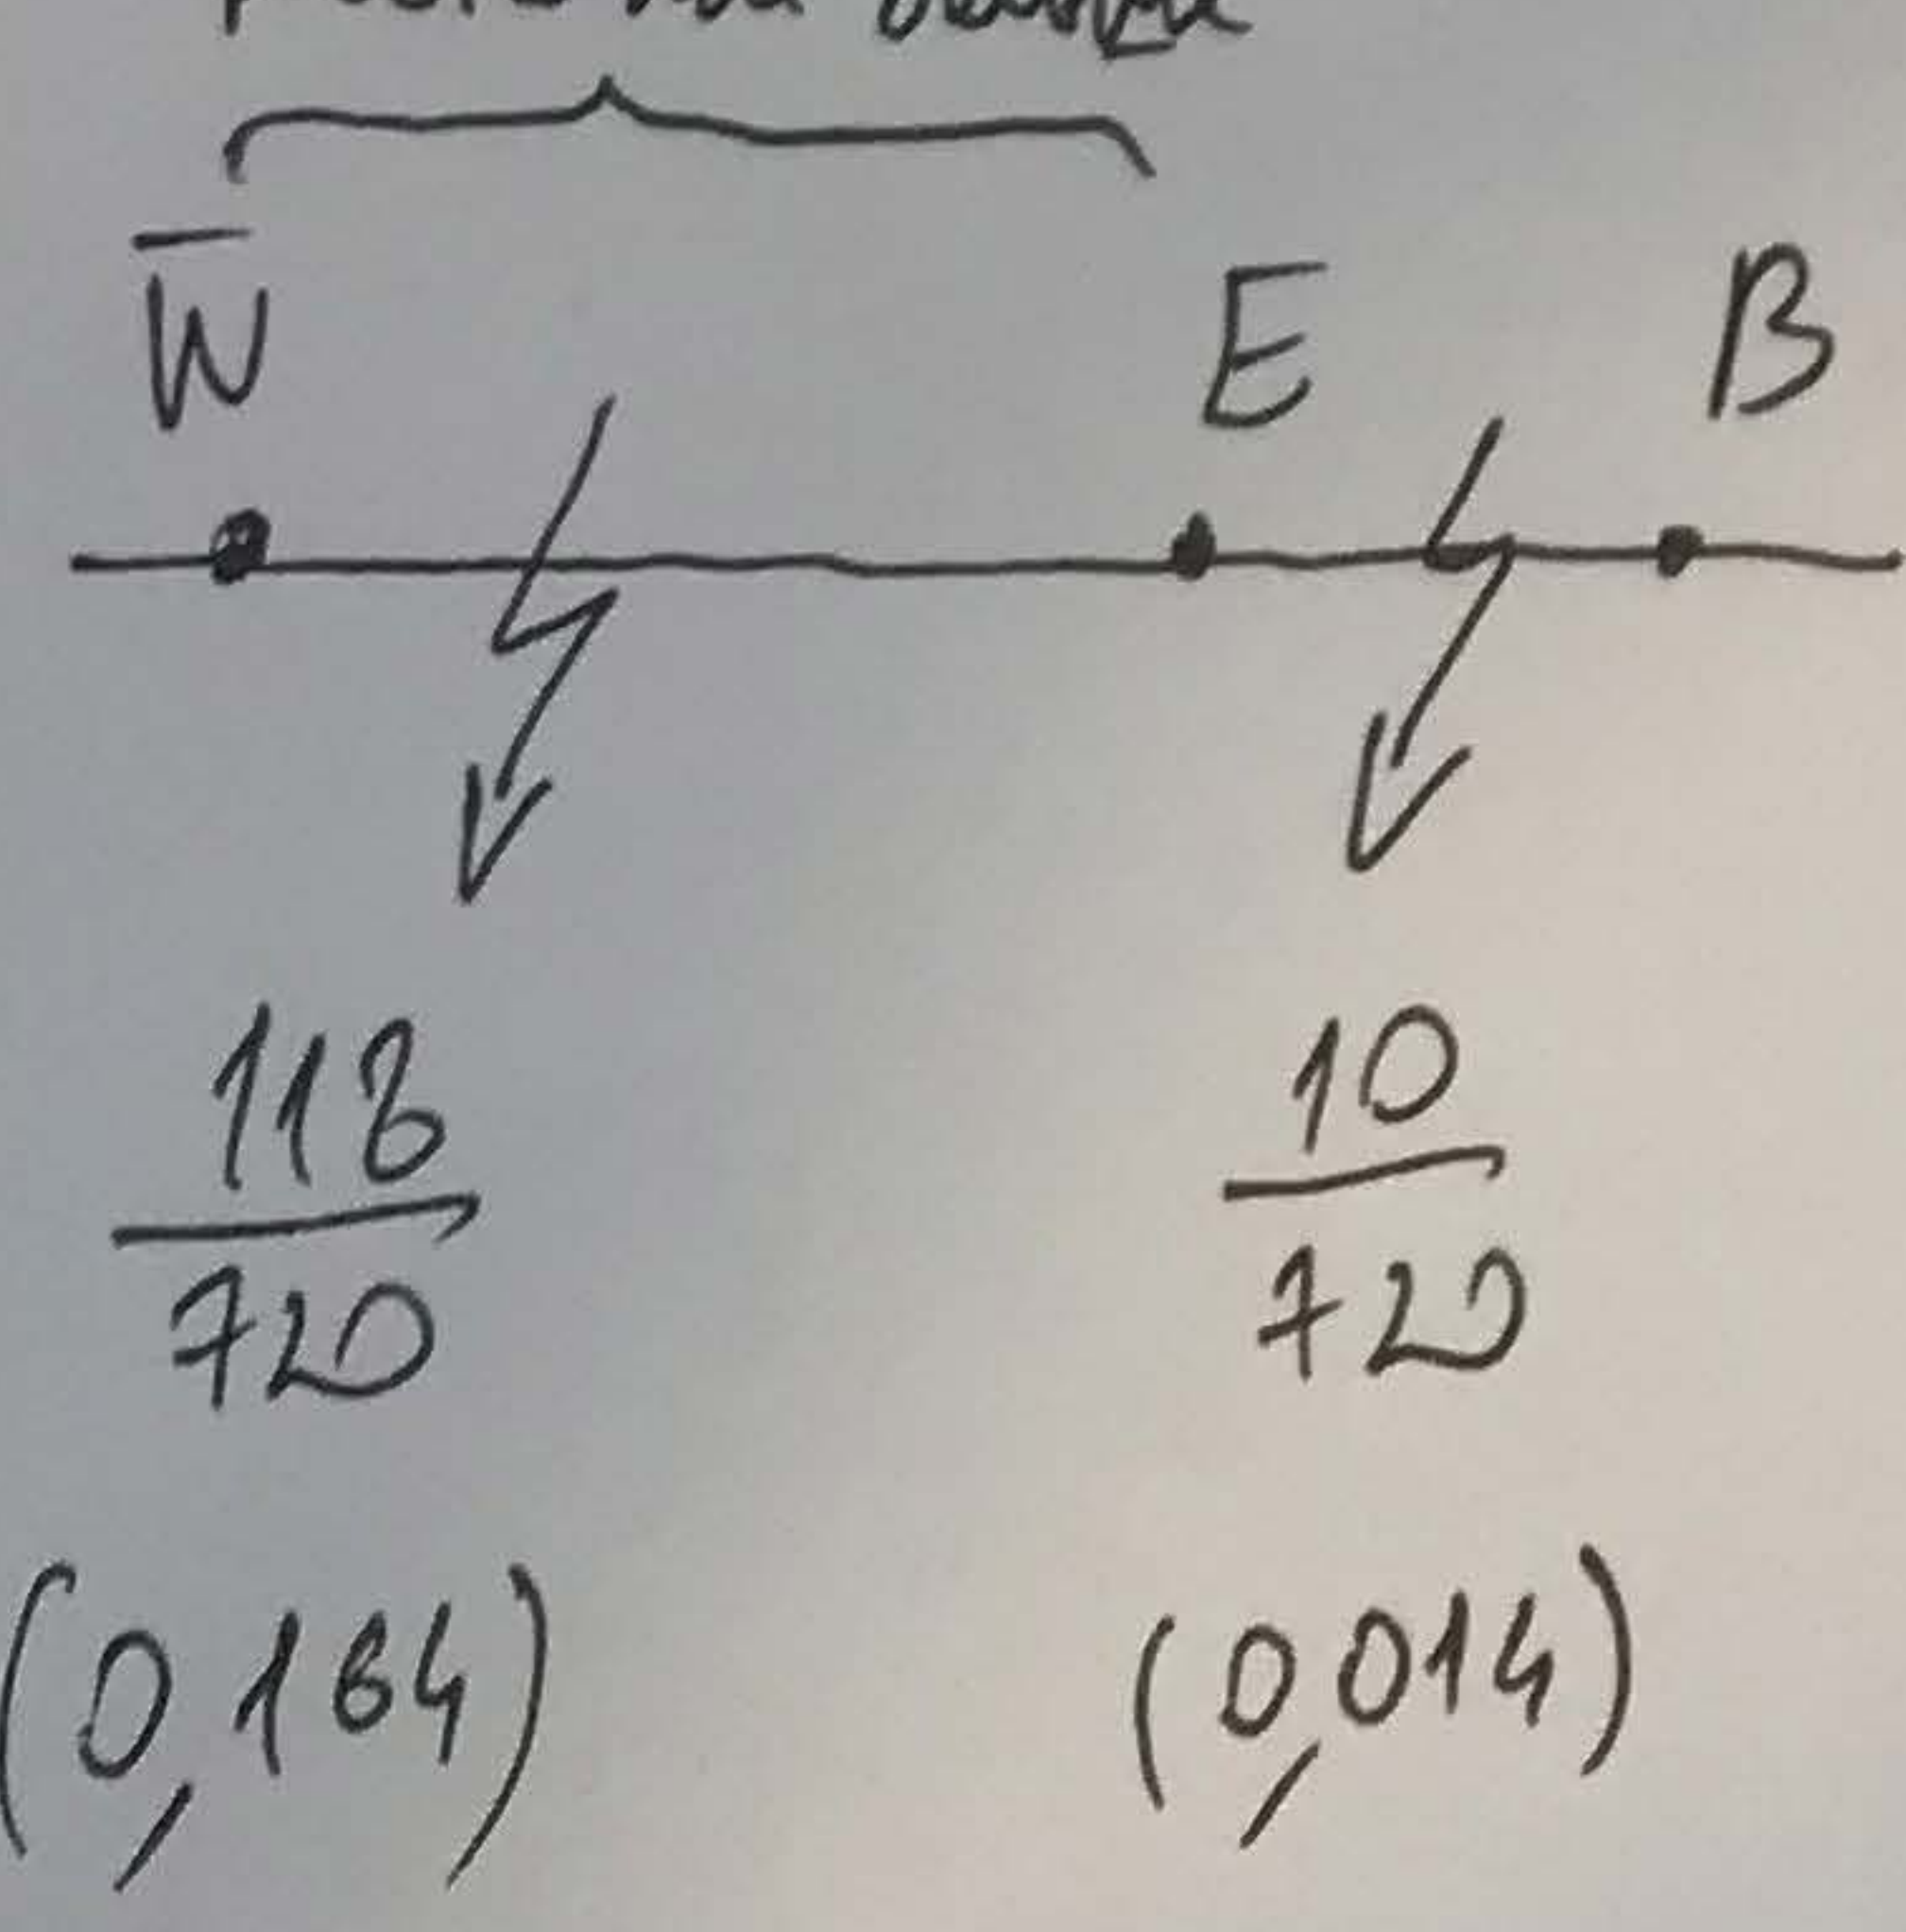 W̅ E B
118/720 10/720
(0,164) (0,014)